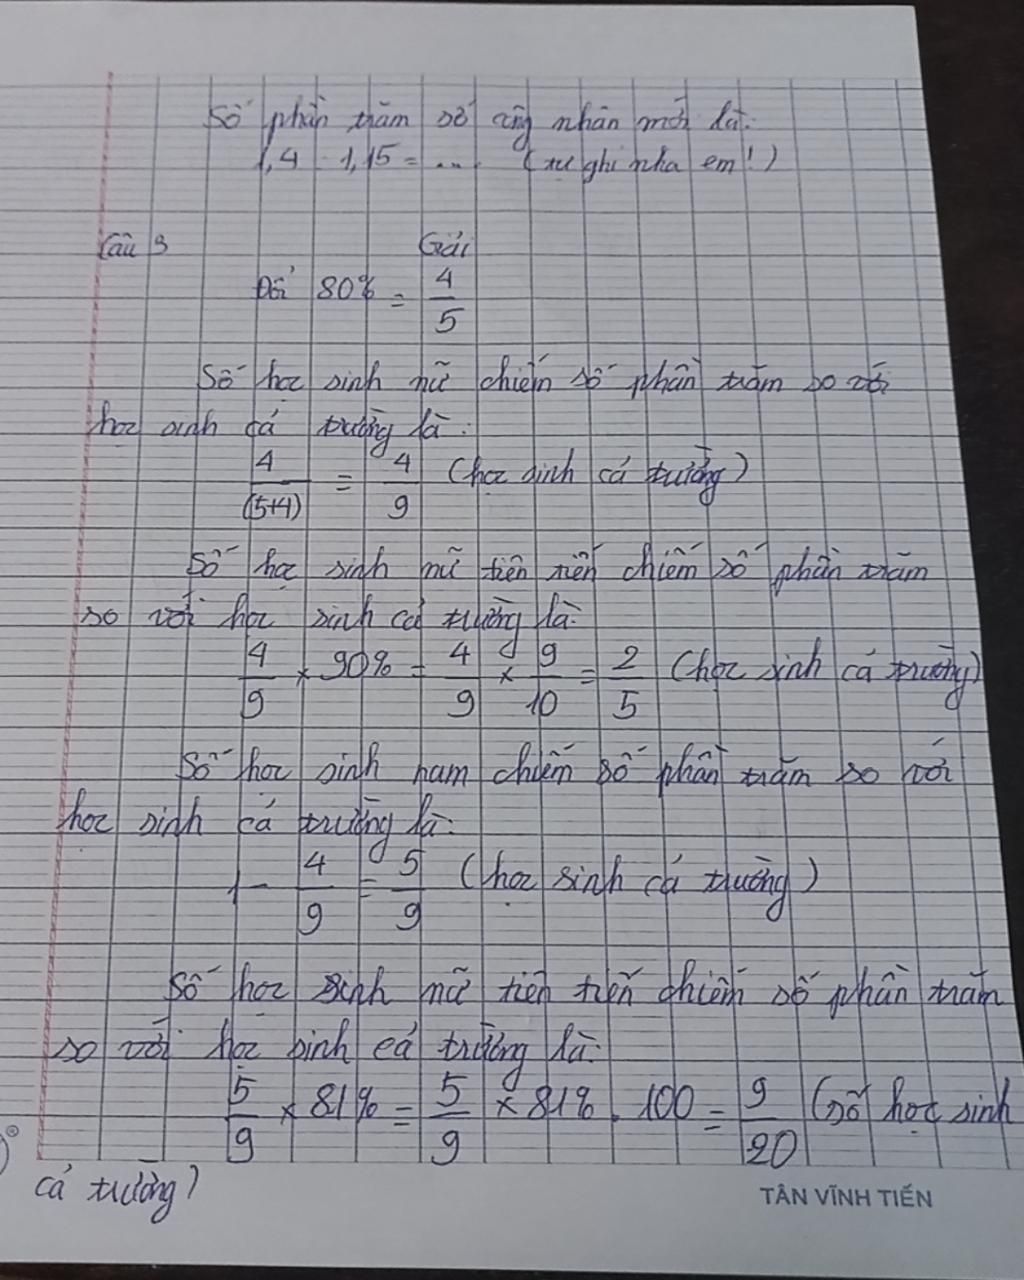 Số phần trăm số công nhân mới là:
1,4 : 1,15 = ... (tự ghi nha em!)
Câu 3 Giải
Đổi 80% = 4/5
Số học sinh nữ chiếm số phần trăm so với
học sinh cả trường là:
4/(5+4) = 4/9 (học sinh cả trường)
Số học sinh nữ tiên tiến chiếm số phần trăm
so với học sinh cả trường là:
4/9 × 90% = 4/9 × 9/10 = 2/5 (học sinh cả trường)
Số học sinh nam chiếm số phần trăm so với
học sinh cả trường là:
1 - 4/9 = 5/9 (học sinh cả trường)
Số học sinh nữ tiên tiến chiếm số phần trăm
so với học sinh cả trường là:
5/9 × 81% = 5/9 × 81% . 100 = 9/20 (số học sinh
cả trường)
TÂN VĨNH TIẾN